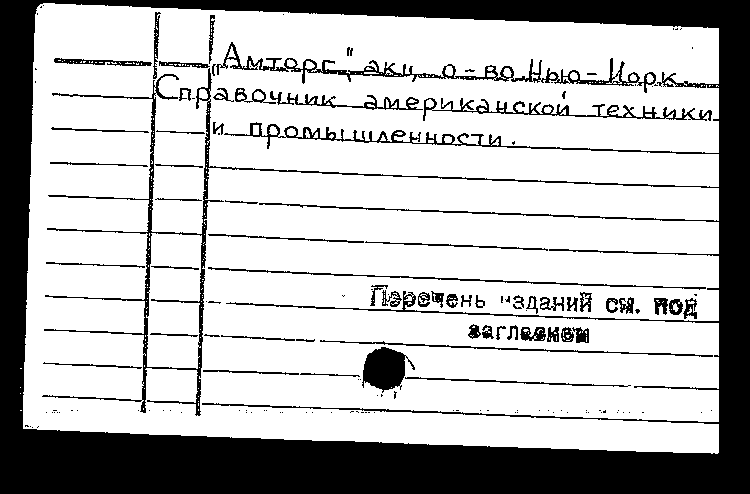 "Амторг" акц. о-во Нью-Йорк.
Справочник американской техники
и промышленности.
Перечень изданий см. под
заглавием